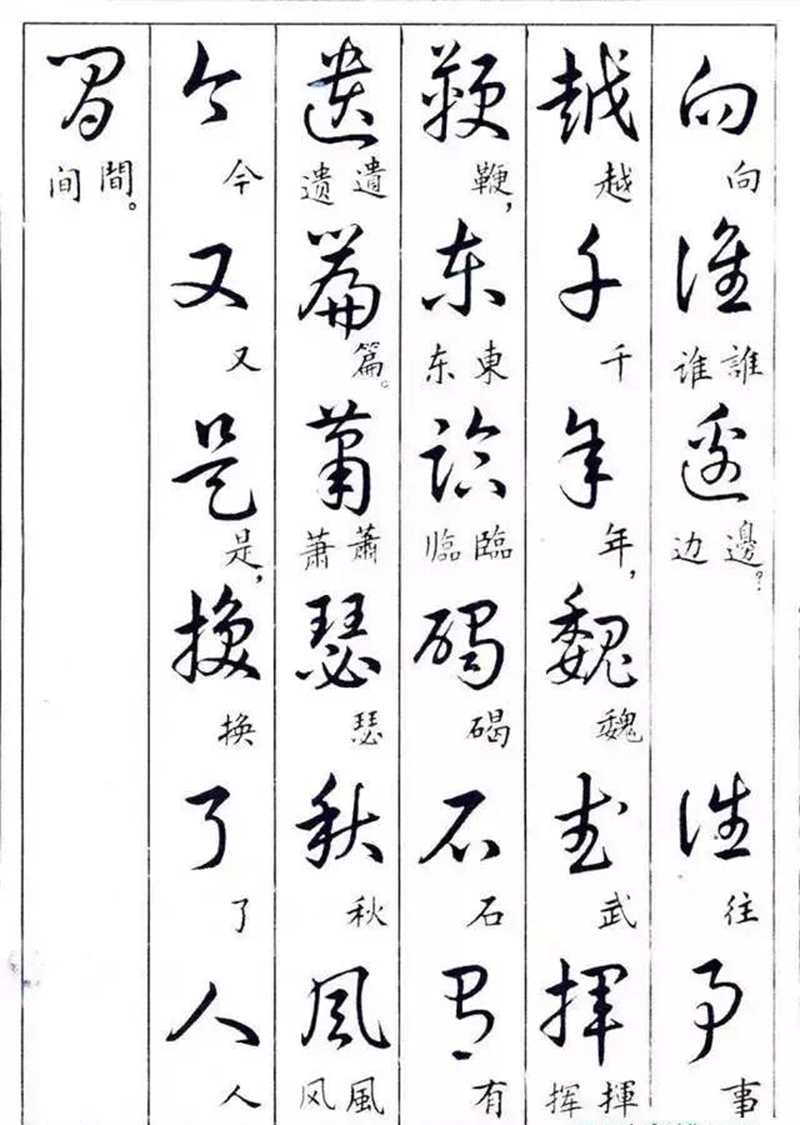 向 向 誰 誰谁 邊 邊?边 往 往 事 事
越 越 千 千 年 年, 魏 魏 武 武 揮 揮挥
鞭 鞭, 东 東东 臨 臨临 碣 碣 石 石 有 有
遗 遺遗 篇 篇。 萧 蕭萧 瑟 瑟 秋 秋 風 風风
今 今 又 又 是 是, 换 换 了 了 人 人
間 間。间